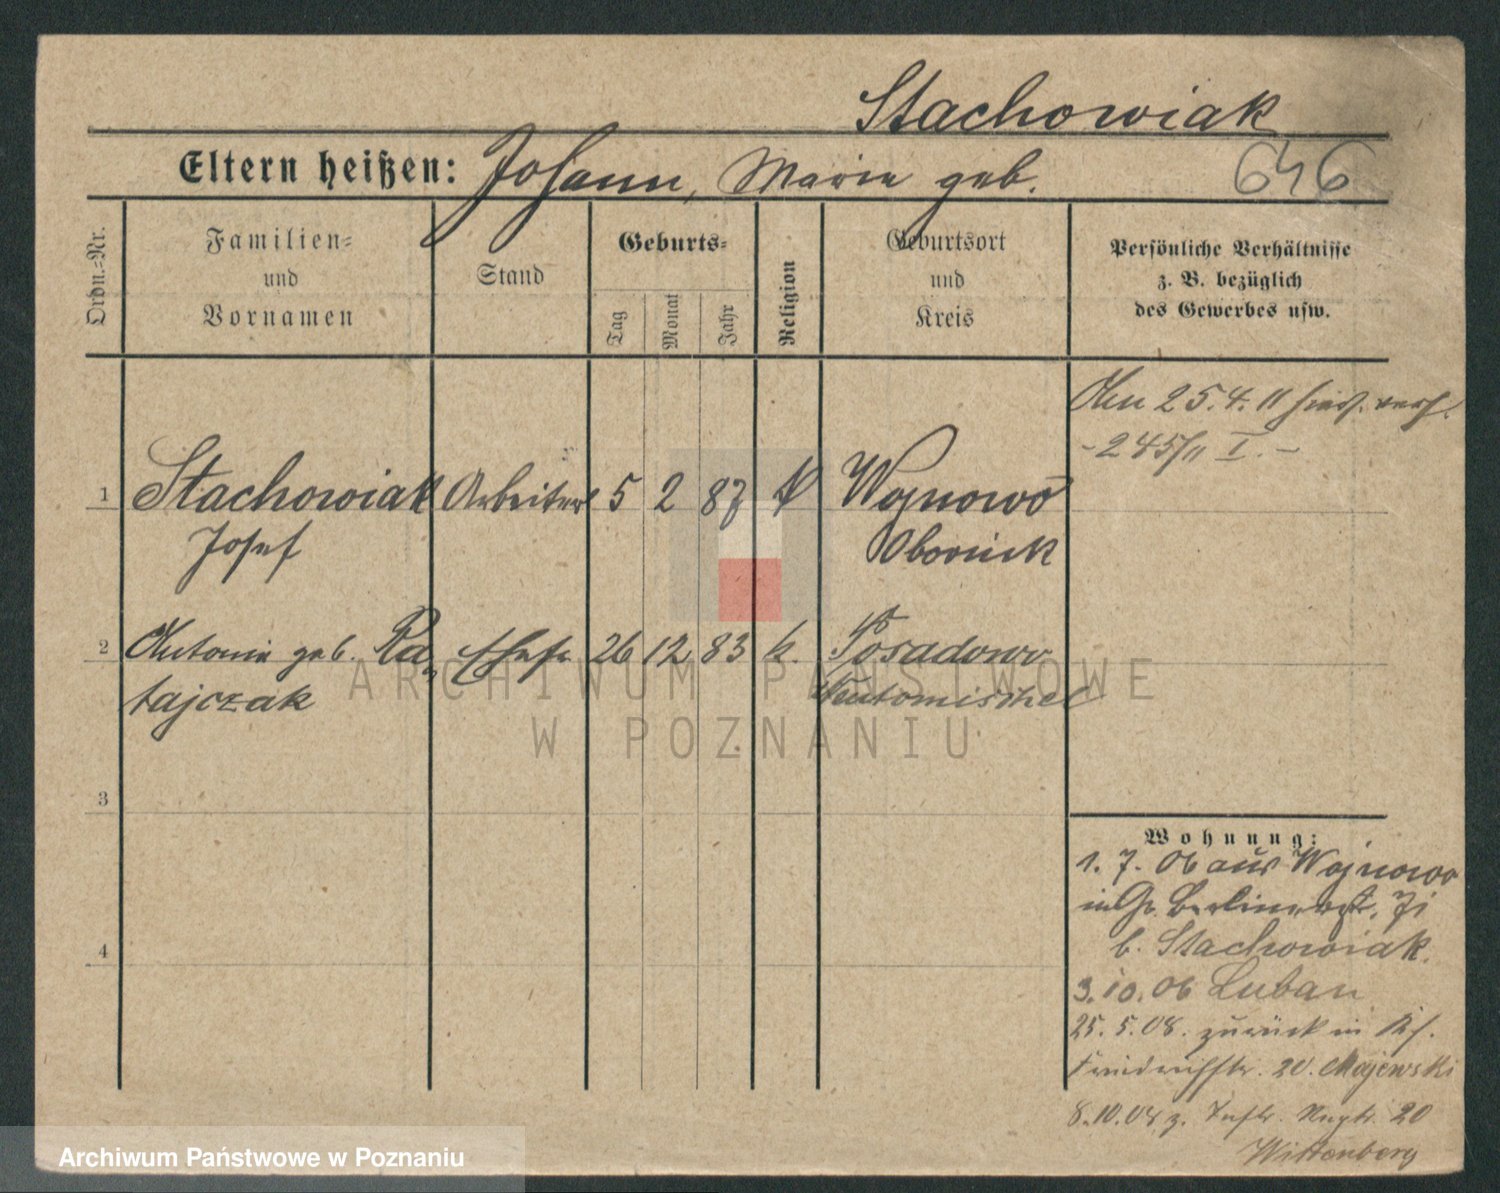 Stachowiak
Eltern heißen: Johann, Marie geb.
646
Ordn.=Nr.
Familien=
und
Vornamen
Stand
Geburts=
Tag
Monat
Jahr
Religion
Geburtsort
und
Kreis
Persönliche Verhältnisse
z. B. bezüglich
des Gewerbes usw.
Den 25.4.11
- 245/11 I. -
1 Stachowiak Arbeiter 5 2 87 k Wojnowo
Josef Obornik
2 Antonie geb. Ra= Ehefr 26 12 83 k. Posadowo
tajczak Neutomischel
3
4
Wohnung:
1. 7. 06 aus Wojnowo
in Gr. Berlinerstr.
b. Stachowiak.
3.10.06 Luban
25. 5. 08. zurück in
20. Majewski
8.10.08 z. 20
Wittenberg
ARCHIWUM PAŃSTWOWE
W POZNANIU
Archiwum Państwowe w Poznaniu